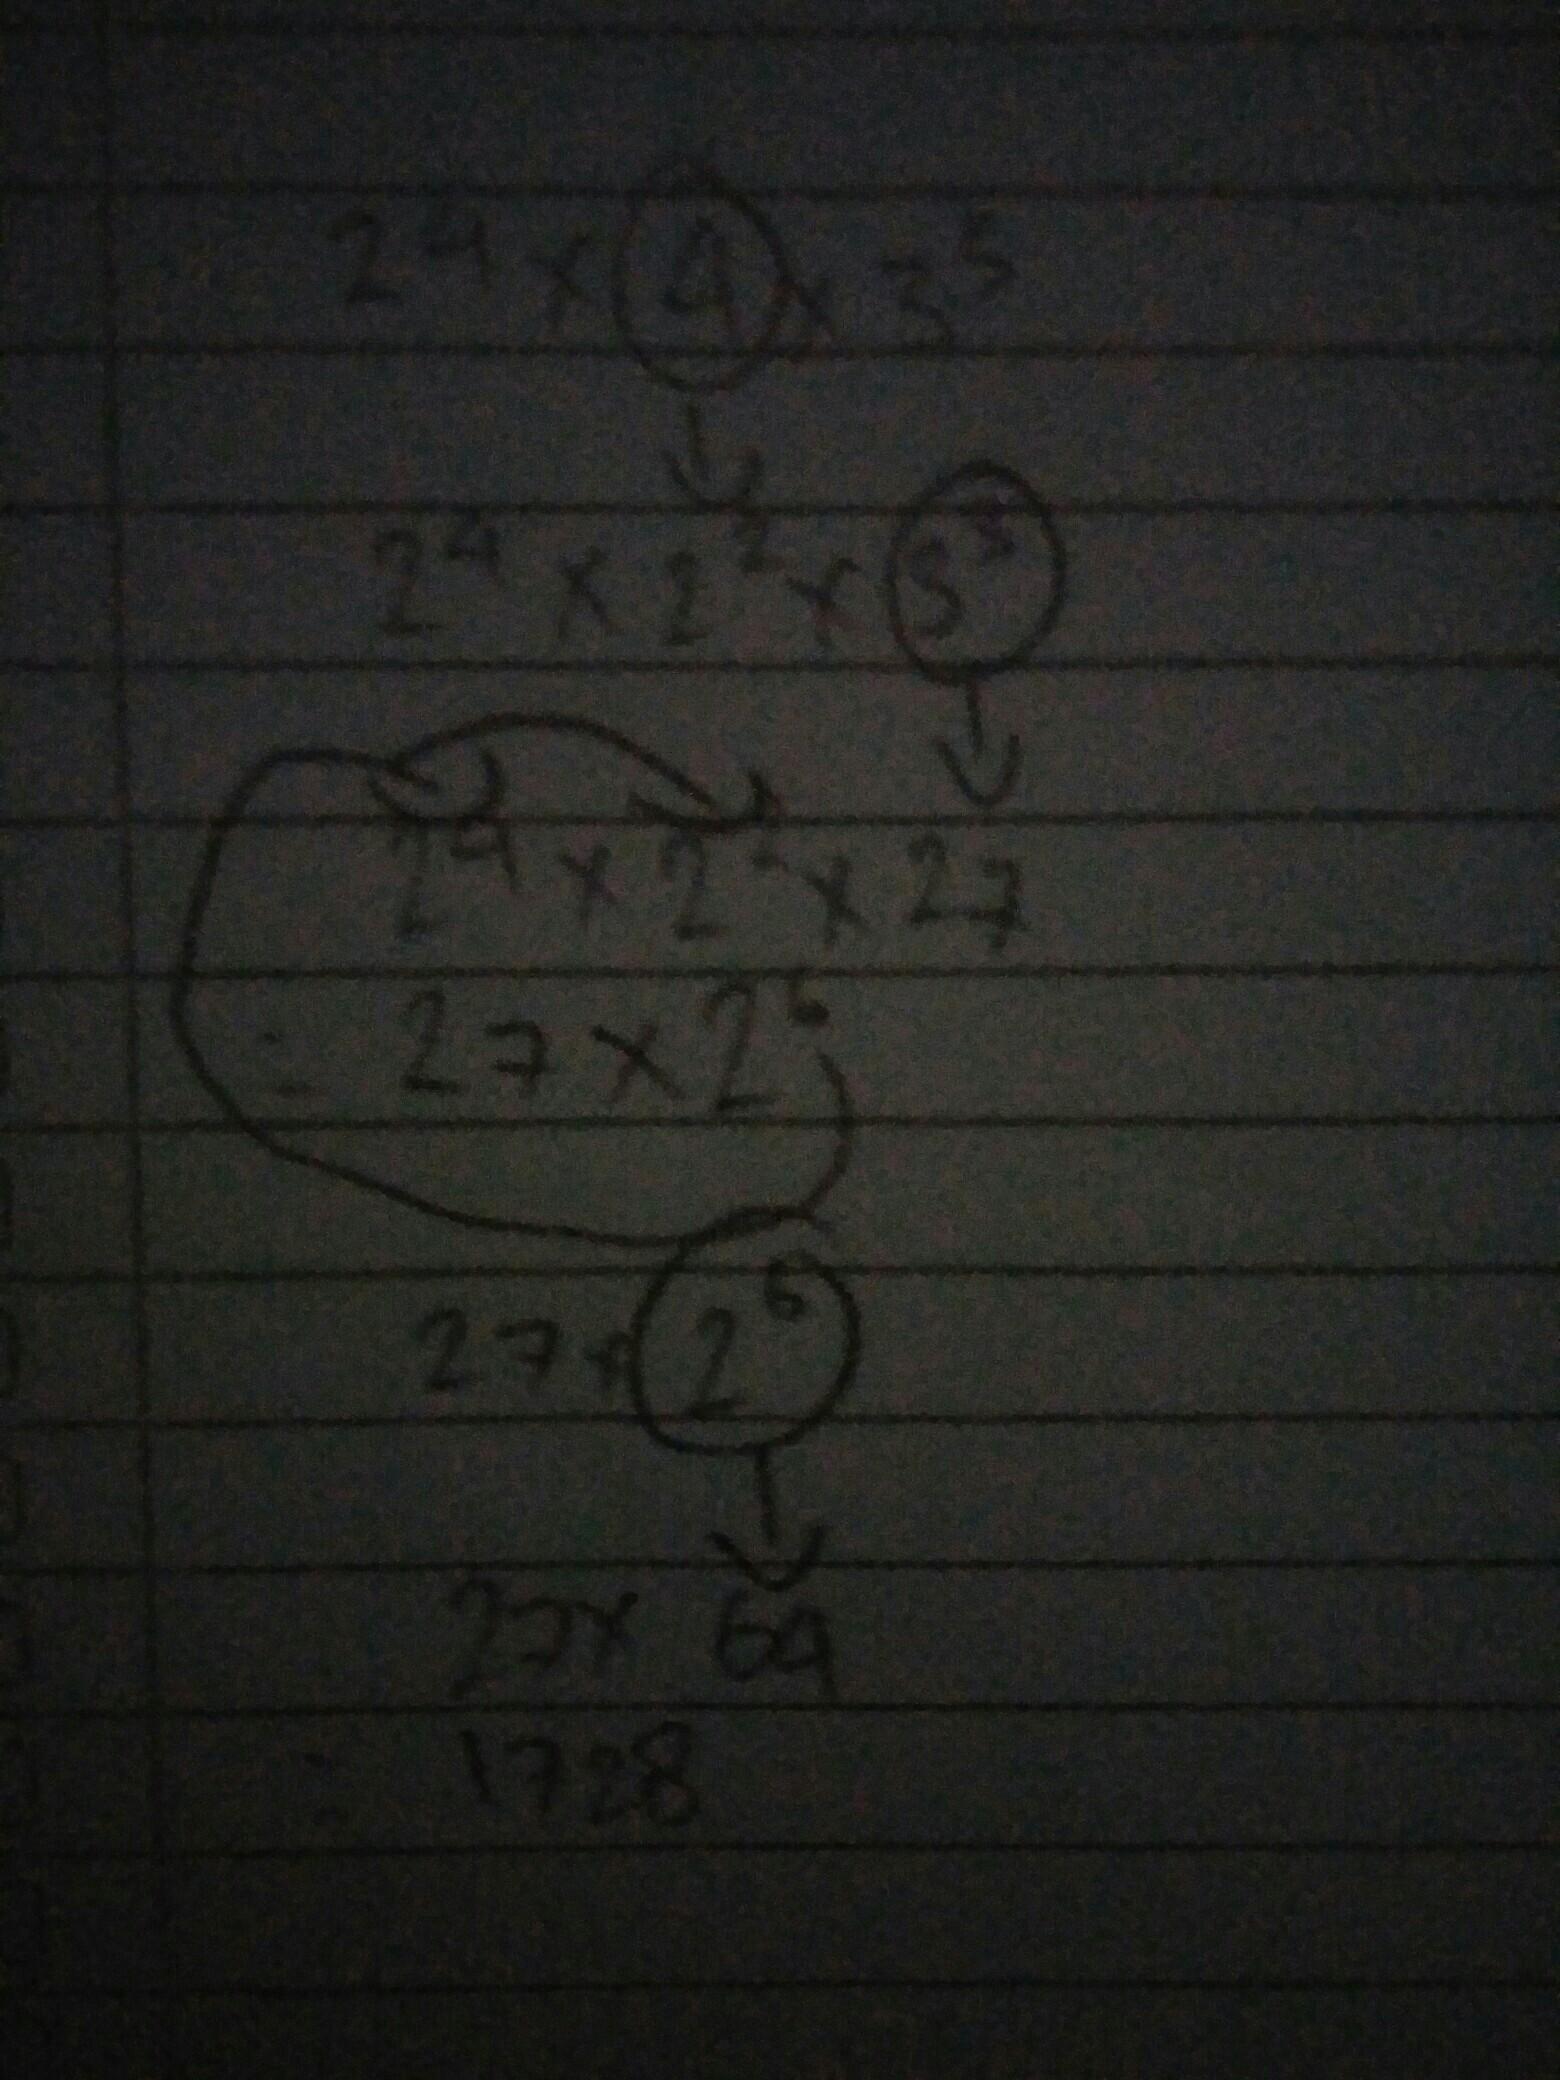 2⁴ × 4 × 3⁵
2⁴ × 2² × 3³
2⁴ × 2² × 27
= 27 × 2⁶
27 × 2⁶
27 × 64
= 1728